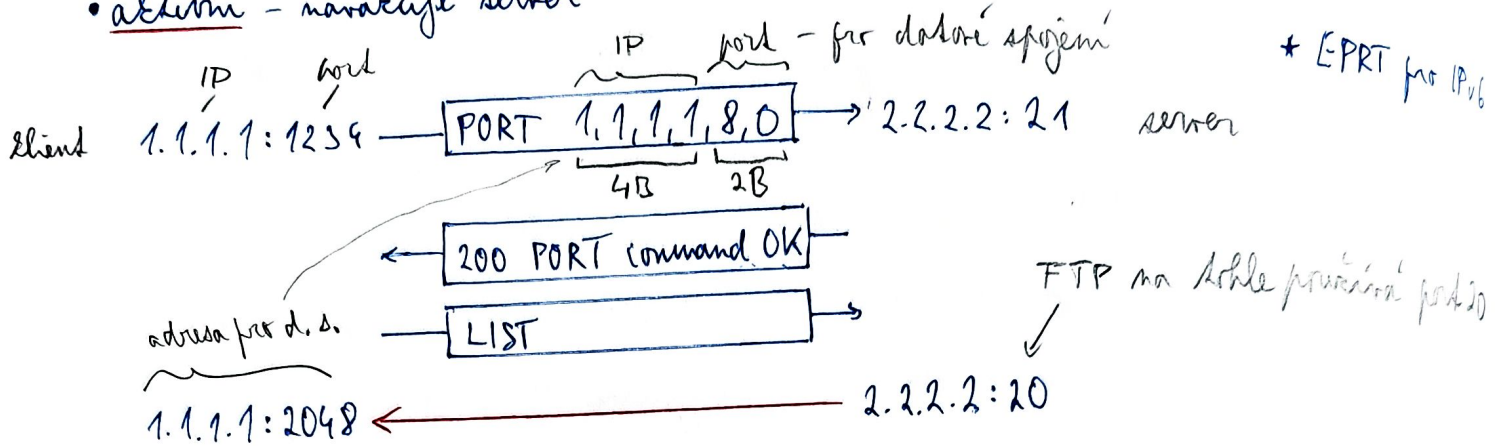 • aktivní – navazuje server
IP port
IP port – pro datové spojení
* EPRT pro IPv6
klient 1.1.1.1:1234 PORT 1,1,1,1,8,0 2.2.2.2:21 server
4B 2B
200 PORT command OK
FTP na tohle používá port 20
adresa pro d. s.
LIST
1.1.1.1:2048 2.2.2.2:20